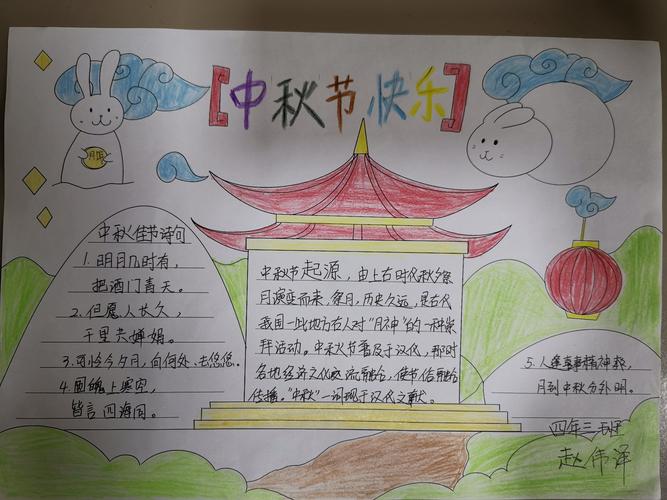 [中秋节快乐]
月饼
中秋佳节诗句
1.明月几时有,
把酒门青天。
2.但愿人长久,
千里共婵娟。
3.可怜今夕月,向何处、去悠悠。
4.圆魄上寒空,
皆言四海同。
中秋节起源,由上古时代秋夕祭
月演变而来,祭月,历史久远,是古代
我国一些地方古人对“月神”的一种崇
拜活动。中秋节普及于汉代,那时
各地经济文化交流融合,使节俗融合
传播。“中秋”一词现于汉代文献。
5.人逢喜事精神爽,
月到中秋分外明。
四年三班
赵伟泽